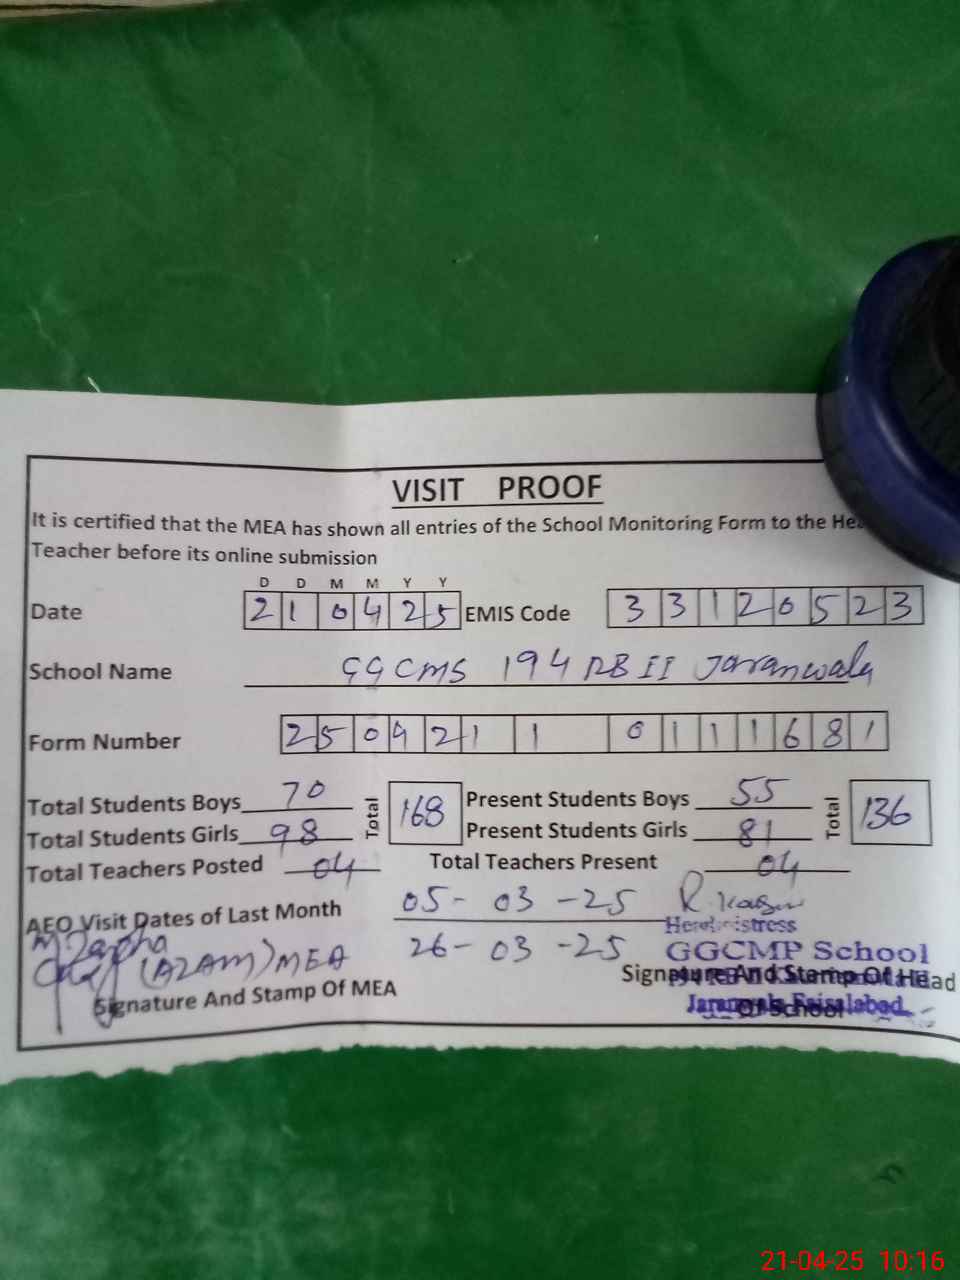 VISIT PROOF
It is certified that the MEA has shown all entries of the School Monitoring Form to the Hea
Teacher before its online submission
D D M M Y Y
Date 2 1 0 4 2 5 EMIS Code 3 3 1 2 0 5 2 3
School Name GGCMS 194 RB II Jaranwala
Form Number 2 5 0 4 2 1 1 0 1 1 1 6 8 1
Total Students Boys 70 Total 168 Present Students Boys 55 Total 136
Total Students Girls 98 Present Students Girls 81
Total Teachers Posted 04 Total Teachers Present 04
AEO Visit Dates of Last Month 05-03-25
26-03-25
(AZAM) MEA
Signature And Stamp Of MEA
GGCMP School
Signature And Stamp Of Head
Of School
Jaranwala Faisalabad
21-04-25 10:16